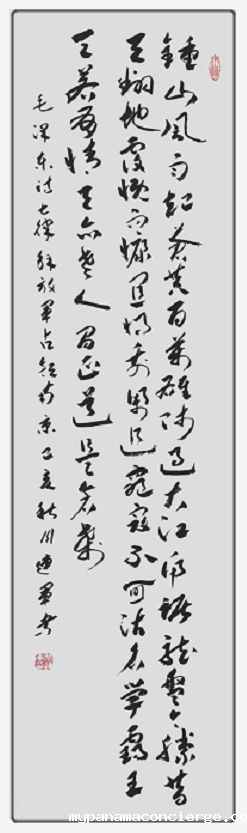 鍾山風雨起蒼黄百萬雄师过大江虎踞龍盤今勝昔
天翻地覆慨而慷宜将剩勇追窮寇不可沽名学霸王
天若有情天亦老人间正道是滄桑
毛泽东诗七律解放軍占領南京己亥秋月連軍书
mypanamaconcierge.com